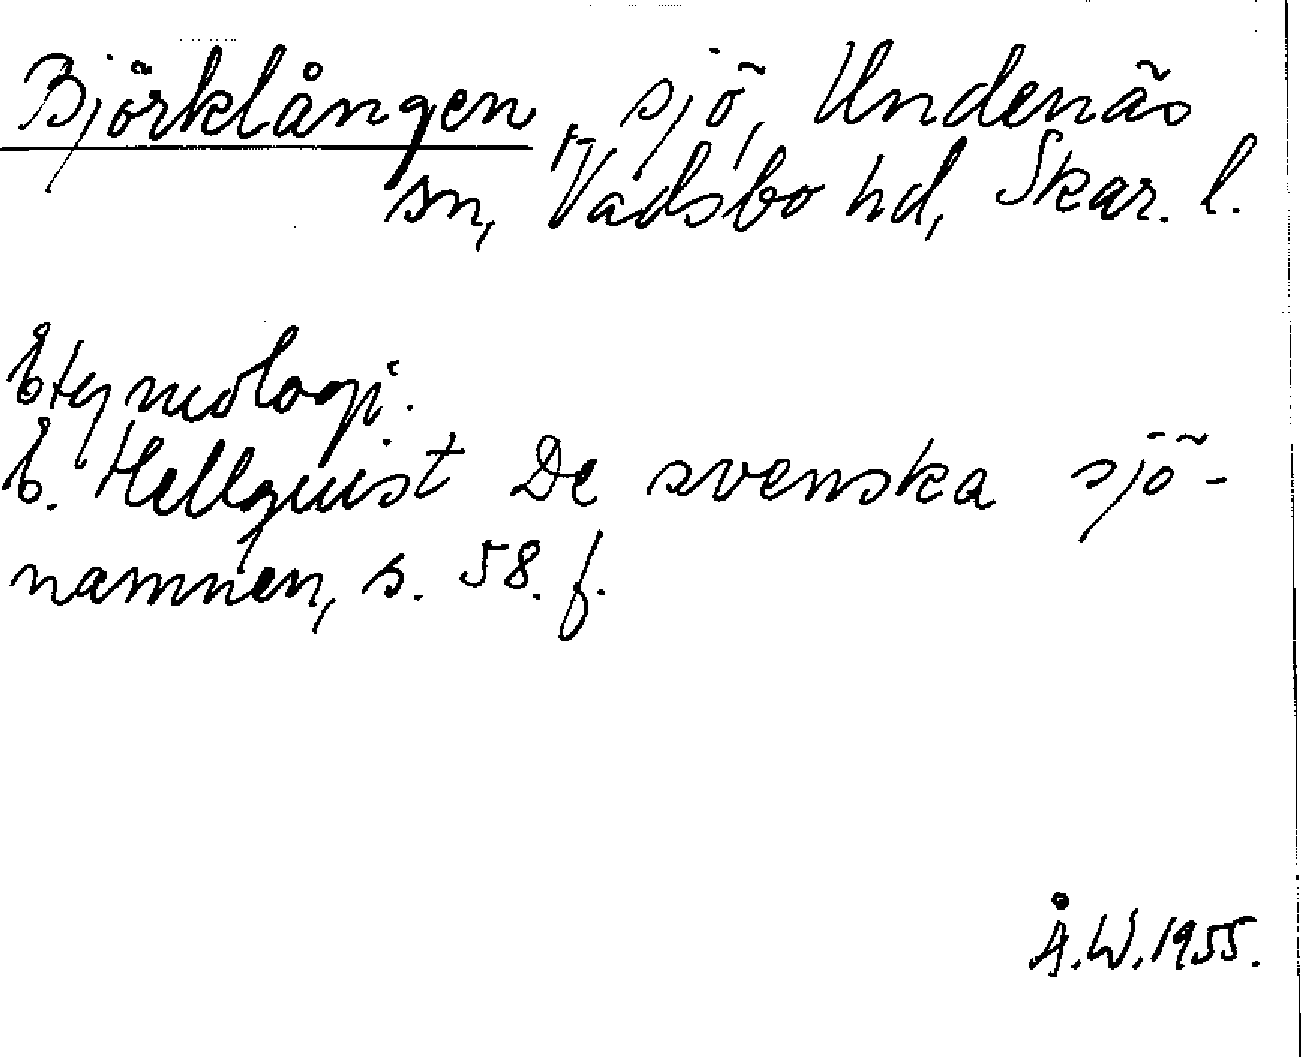 Björklången, sjö, Undenäs
sn, Vadsbo hd, Skar. l.
Etymologi.
E. Hellquist De svenska sjö-
namnen, s. 58. f.
Å.W.1955.